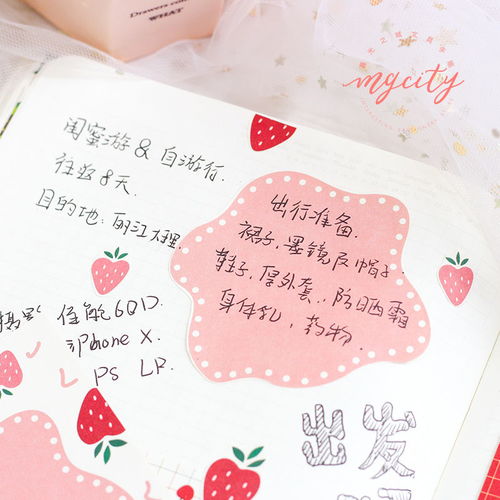 Drawers col
WHAT
mycity
闺蜜游 & 自游行.
往返8天.
目的地:丽江大理.
出行准备.
裙子,墨镜及帽子.
鞋子,厚外套,防晒霜
身体乳,药物.
佳能60D.
iPhone X.
PS LR.
出发